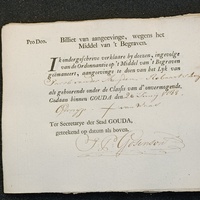 Pro Deo.
Billiet van aangeevinge, wegens het
Middel van 't Begraven.
Ik ondergeschreve verklaare by deezen, ingevolge
van de Ordonnantie op 't Middel van 't Begraven
geëmaneert, aangeevinge te doen van het Lyk van
als gehoorende onder de Classis van d'onvermogende.
Gedaan binnen GOUDA den
Ter Secretarye der Stad GOUDA,
geteekend op datum als boven.